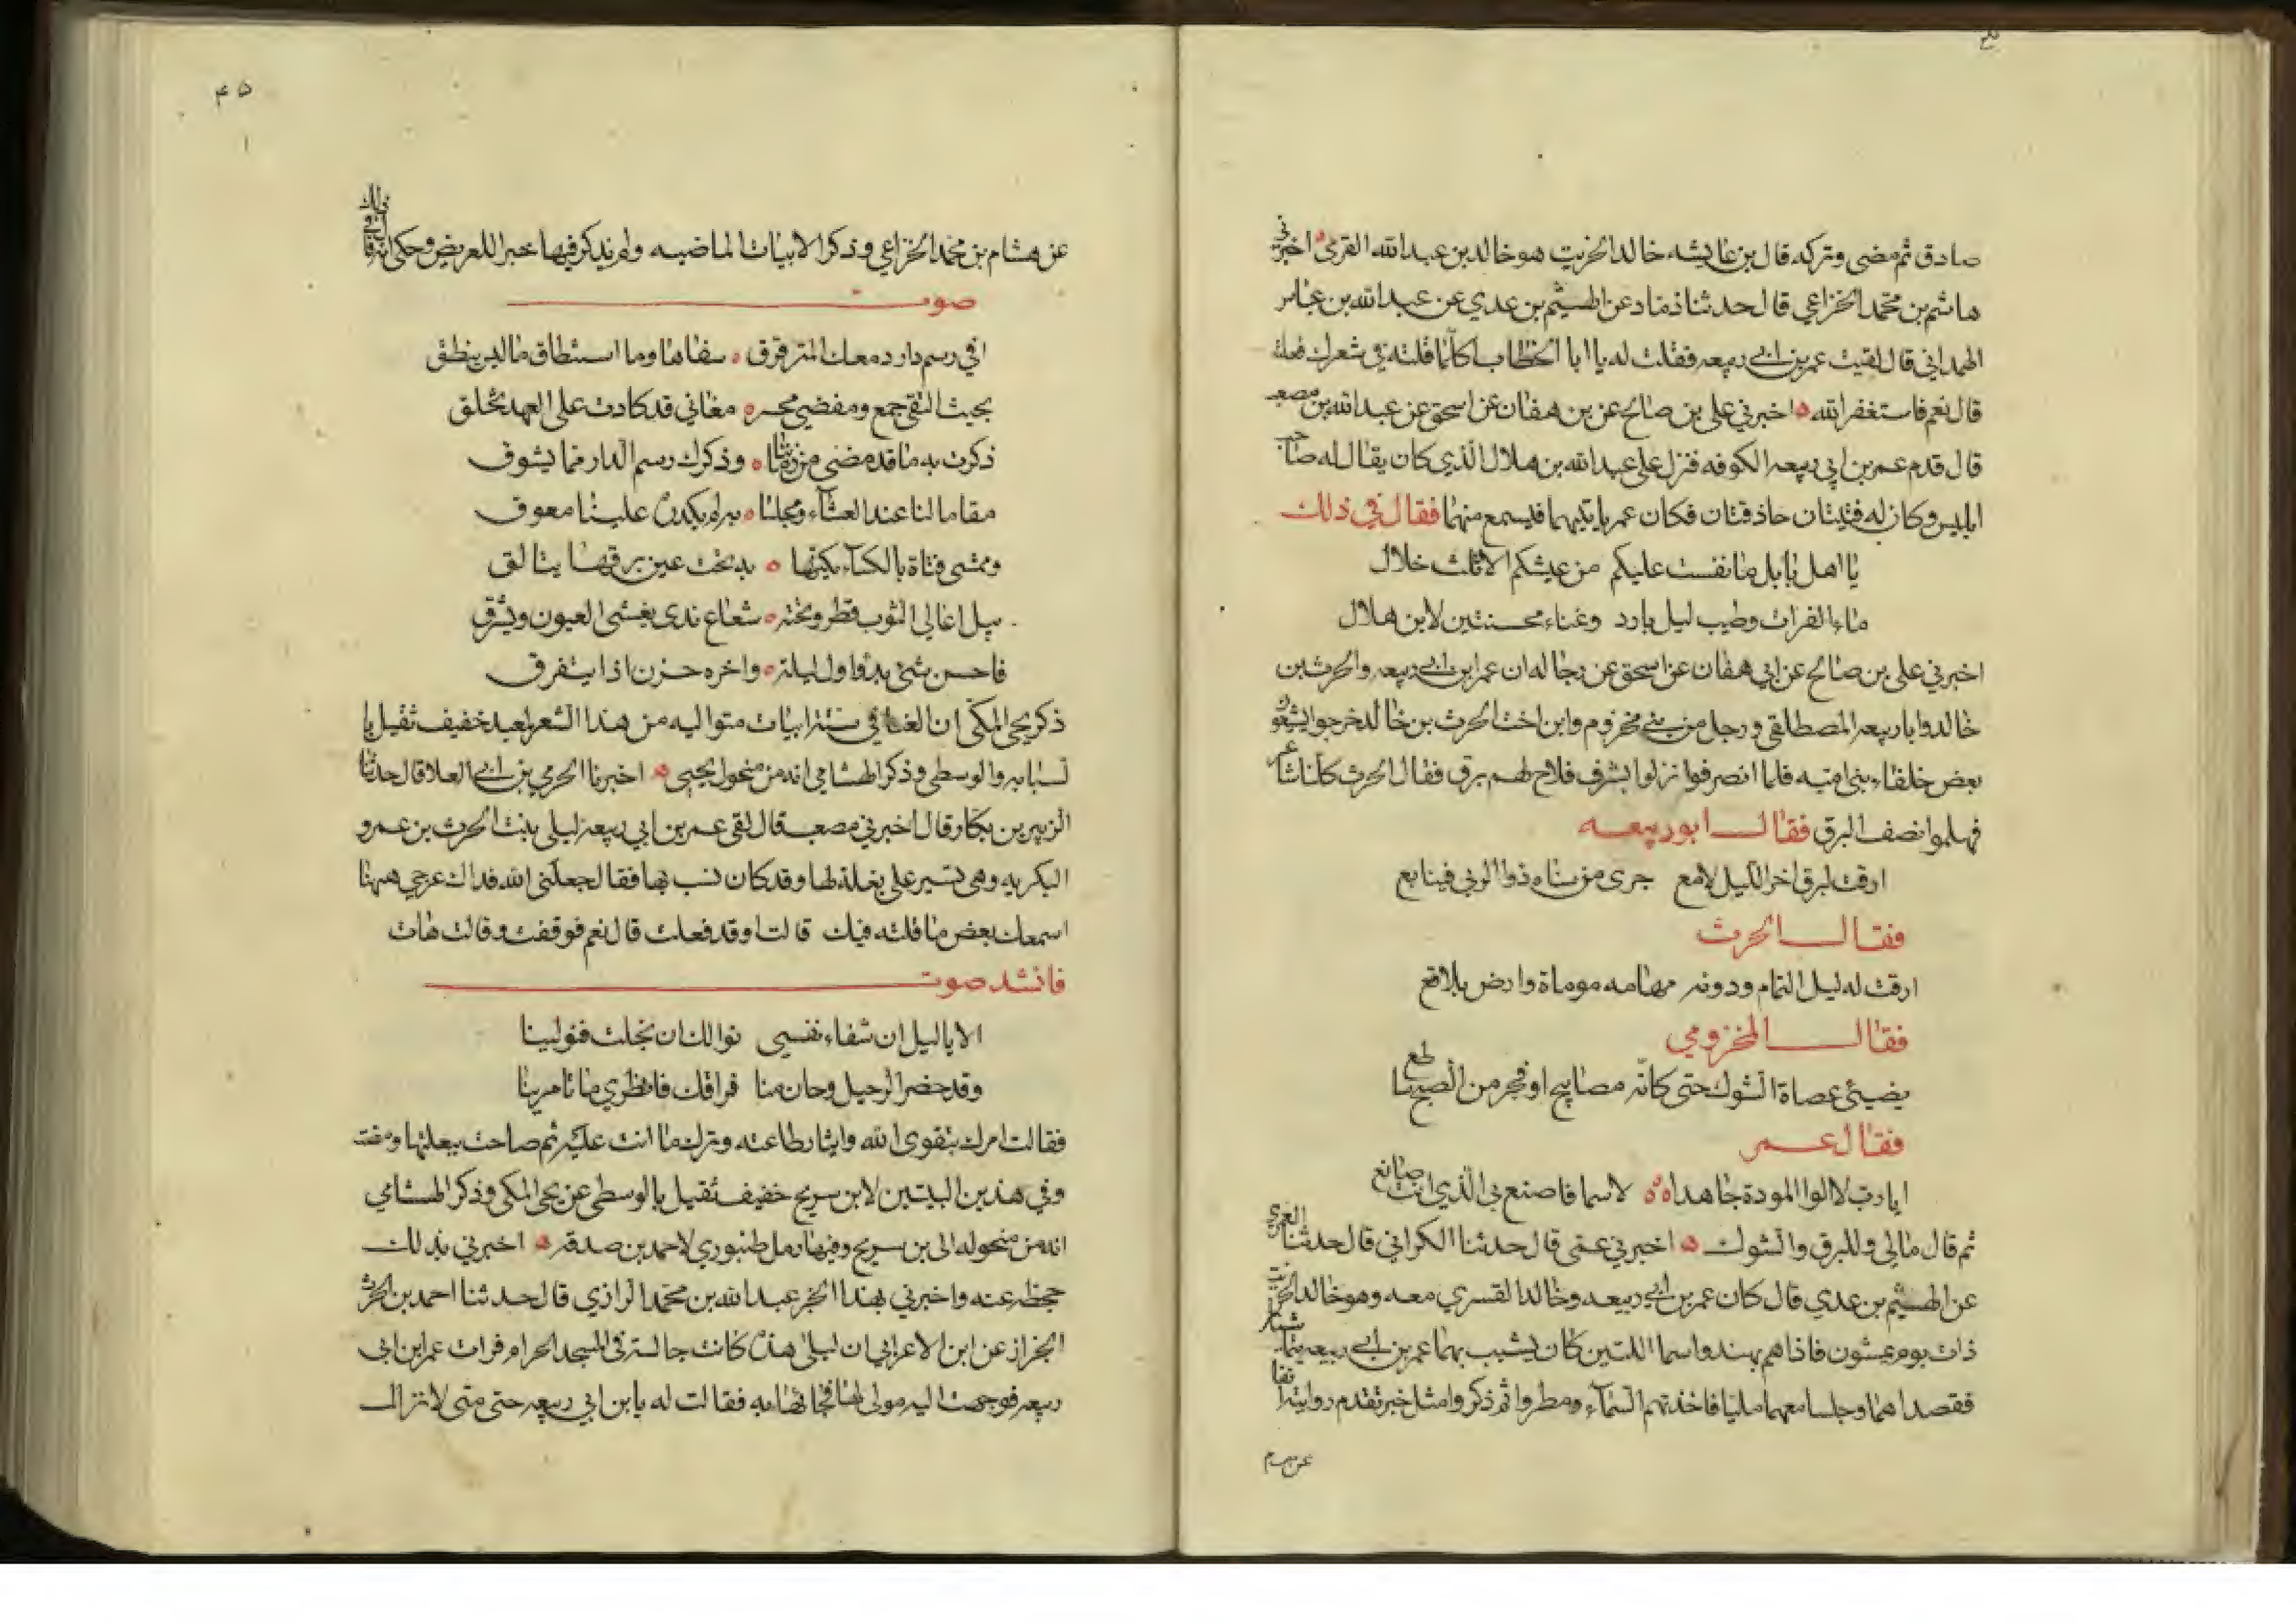 صادق ثم مضى وتركه قال بن عايشه خالد الخريت هو خالد بن عبد الله القري اخبرني
هاشم بن محمد الخزاعي قال حدثنا دماد عن الهيثم بن عدي عن عبد الله بن عياش
الهمداني قال لقيت عمر بن ابي ربيعه فقلت له يا ابا الخطاب اكلما قلته في شعرك فعلته
قال نعم فاستغفر الله اخبرني علي بن صالح عن بن هفان عن اسحق عن عبد الله بن مصعب
قال قدم عمر بن ابي ربيعه الكوفه فنزل على عبد الله بن هلال الذي كان يقال له صاحب
ابليس وكان له قينتان حاذقتان فكان عمر ياتيهما فيسمع منهما فقال في ذلك
يا اهل بابل ما نفست عليكم من عيشكم الا ثلث خلال
ماء الفرات وطيب ليل بارد وغناء محسنتين لابن هلال
اخبرني علي بن صالح عن ابي هفان عن اسحق عن رجاله ان عمر ابن ابي ربيعه والحرث بن
خالد وابا ربيعه المصطلقي ورجل من بني مخزوم وابن اخت الحرث بن خالد خرجوا يشيعون
بعض خلفاء بني اميه فلما انصرفوا نزلوا بسرف فلاح لهم برق فقال الحرث كلنا شاعر
فهلموا نصف البرق فقال ابو ربيعه
ارقت لبرق اخر الليل لامع جرى من سناه ذوا الربى فينابع
فقال الحرث
ارقت له ليل التمام ودونه مهامه موماة وارض بلاقع
فقال المخزومي
يضيئ عصاة الشوك حتى كانه مصابيح او فجر من الصبح لمع
فقال عمر
ايا رب لا الوا المودة جاهدا لاسما فاصنع بي الذي انت صانع
ثم قال مالي وللبرق والشوك اخبرني عمي قال حدثنا الكراني قال حدثنا العمري
عن الهيثم بن عدي قال كان عمر بن ابي ربيعه وخالد القسري معه وهو خالد الخريت
ذات يوم يمشون فاذا هم بهند واسما اللتين كان يشبب بهما عمر بن ابي ربيعه يتماشيان
فقصداهما وجلسا معهما مليا فاخذتهم السماء ومطروا ثم ذكروا مثل خبر تقدم روايته انفا
عن هشام
٤٥
عن هشام بن محمد الخزاعي وذكر الابيات الماضيه ولم يذكر فيها خبر اللعريض وحكى انه قال في ذلك
صوت
افي رسم دار دمعك المترقرق سفاها وما استنطاق ما ليس ينطق
بحيث التقى جمع ومفضى محسر مغاني قد كادت على العهد تخلق
ذكرت به ما قد مضى من زماننا وذكرك رسم الدار مما يشوق
مقاما لنا عند العشاء ومجلسا به لم يكدره علينا معوق
وممشى فتاة بالكساء يكنها به تحت عين برقها يتالق
يبل اعالي الثوب قطر وتحته شعاع ندى يغشى العيون ويشرق
فاحسن شئ بدؤ اول ليلة واخره حزن اذا يتفرق
ذكر يحيى المكي ان الغنا في ستة ابيات متواليه من هذا الشعر لمعبد خفيف ثقيل با
لسبابه والوسطى وذكر الهشامي انه من منحول يحيى اخبرنا الحرمي بن ابي العلا قال حدثنا
الزبير بن بكار وقال اخبرني مصعب قال لقى عمر بن ابي ربيعه ليلى بنت الحرث بن عمرو
البكريه وهي تسير على بغلة لها وقد كان نسب بها فقال جعلني الله فداك عرجي ههنا
اسمعك بعض ما قلته فيك قالت او قد فعلت قال نعم فوقفت وقالت هات
فانشد صوت
الا يا ليل ان شفاء نفسي نوالك ان بخلت فنولينا
وقد حضر الرحيل وحان منا فراقك فانظري ما تامرينا
فقالت امرك بتقوى الله وايثار طاعته وترك ما انت عليه ثم صاحت ببغلتها ومضت
وفي هذين البيتين لابن سريج خفيف ثقيل بالوسطى عن يحي المكي وذكر الهشامي
انه من منحوله الى بن سريج وفيها رمل طنبوري لاحمد بن صدقه اخبرني بذلك
جحظه عنه واخبرني بهذا الخبر عبد الله بن محمد الرازي قال حدثنا احمد بن الحرث
الخراز عن ابن الاعرابي ان ليلى هذه كانت جالسة في المسجد الحرام فرات عمر ابن ابي
ربيعه فوجهت اليه مولى لها فجائها به فقالت له يا بن ابي ربيعه حتى متى لا تزال